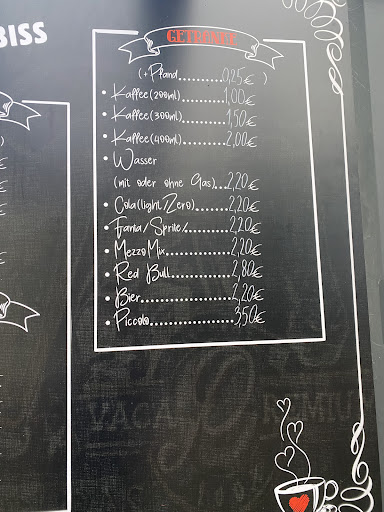 BISS
GETRÄNKE
(+Pfand..........0,25€ )
• Kaffee(200ml)..........1,00€
• Kaffee(300ml)..........1,50€
• Kaffee(400ml)..........2,00€
• Wasser
(mit oder ohne Gas)...2,20€
• Cola(light/Zero).......2,20€
• Fanta/Sprite/..........2,20€
• Mezzo Mix.............2,20€
• Red Bull..............2,80€
• Bier..................2,20€
• Piccolo...............3,50€
VACA